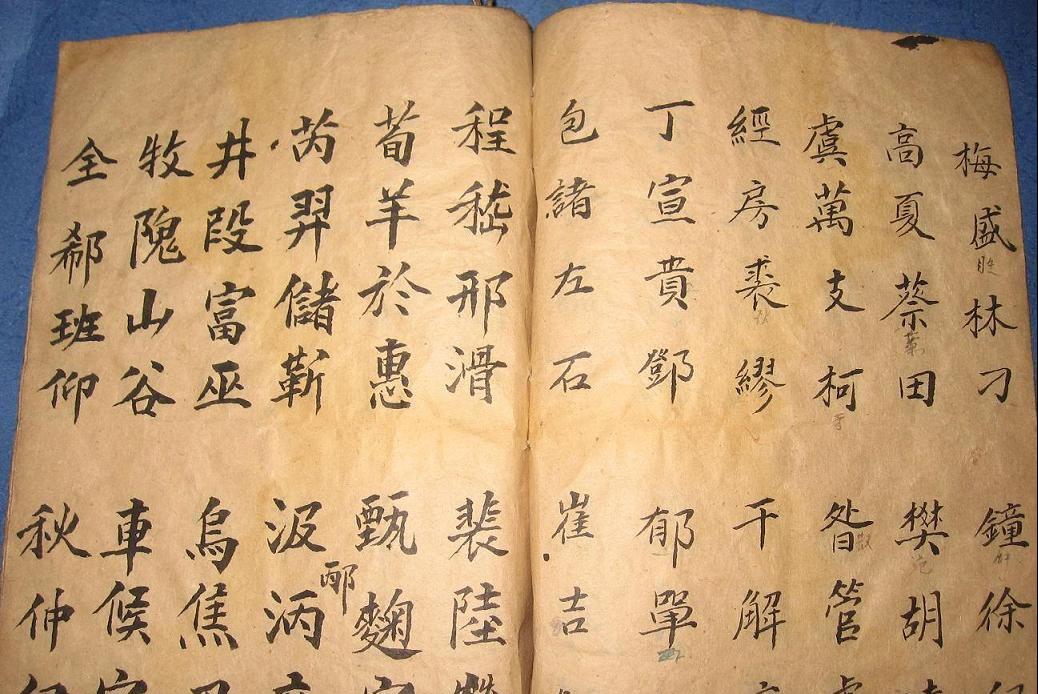 梅盛林刁 鐘徐
高夏蔡田 樊胡
虞萬支柯 昝管
經房裘繆 干解
丁宣賁鄧 郁單
包諸左石 崔吉
程嵇邢滑 裴陸
荀羊於惠 甄麴
芮羿儲靳 汲
邴
井段富巫 烏焦
牧隗山谷 車候
全郗班仰 秋仲